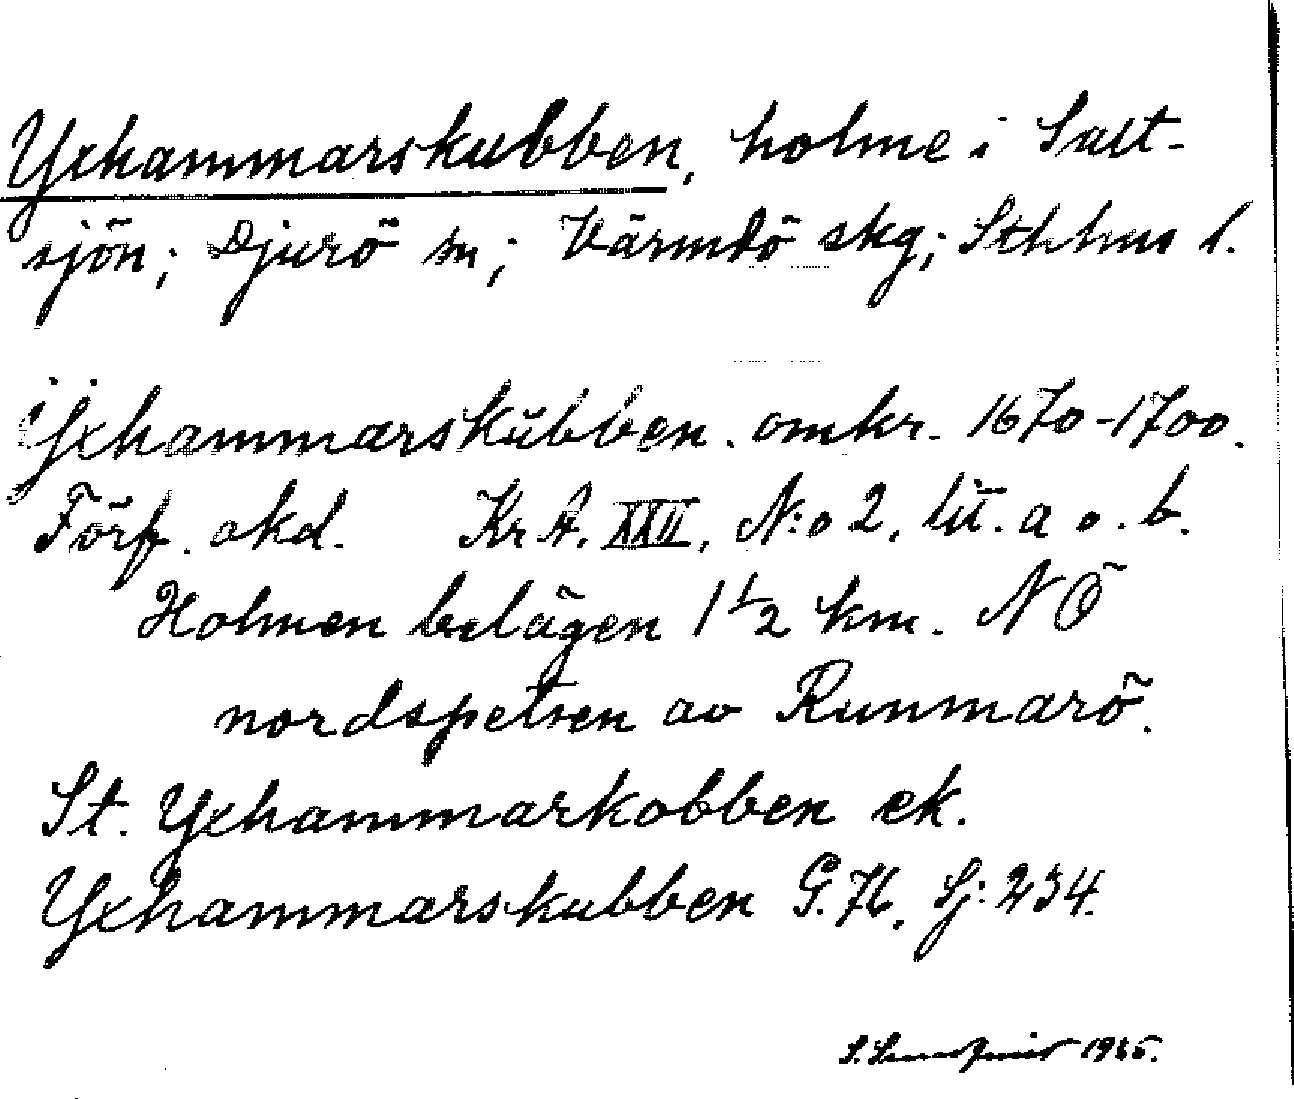 Yxhammarskubben, holme i Salt-
sjön; Djurö sn; Värmdö skg; Sthlms l.
Ÿxhammarskŭbben. omkr. 1670-1700.
Förf. okd. Kr.A. XXII, N:o 2, lit. a o. b.
Holmen belägen 1 1/2 km. NÖ
nordspetsen av Runmarö.
St. Yxhammarkobben ek.
Yxhammarskubben G.K. Sj: 234.